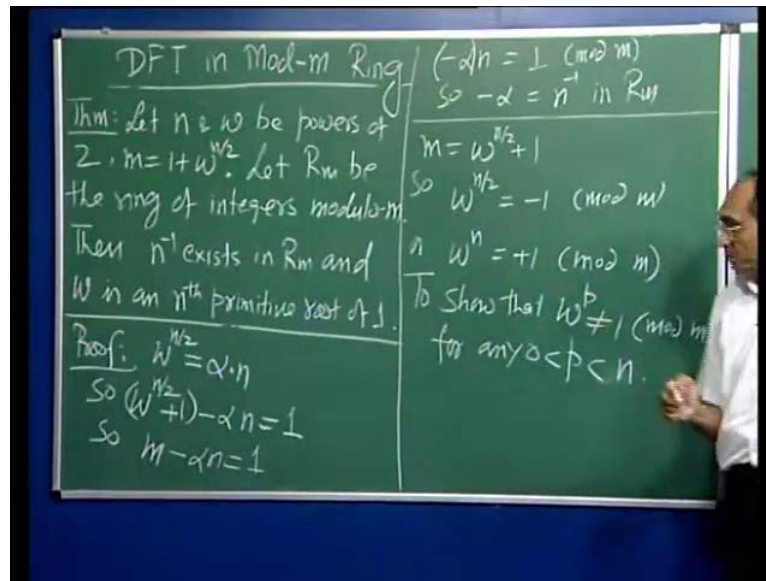 DFT in Mod-m Ring
Thm: Let n & ω be powers of
2, m = 1 + ω^{n/2}. Let Rm be
the ring of integers modulo-m.
Then n^{-1} exists in Rm and
ω is an n^{th} primitive root of 1.
Proof: ω^{n/2} = α·n
So (ω^{n/2}+1) - αn = 1
So m - αn = 1
(-α)n = 1 (mod m)
so -α = n^{-1} in Rm
m = ω^{n/2} + 1
So ω^{n/2} = -1 (mod m)
ω^n = +1 (mod m)
To show that ω^p ≠ 1 (mod m)
for any 0 < p < n.